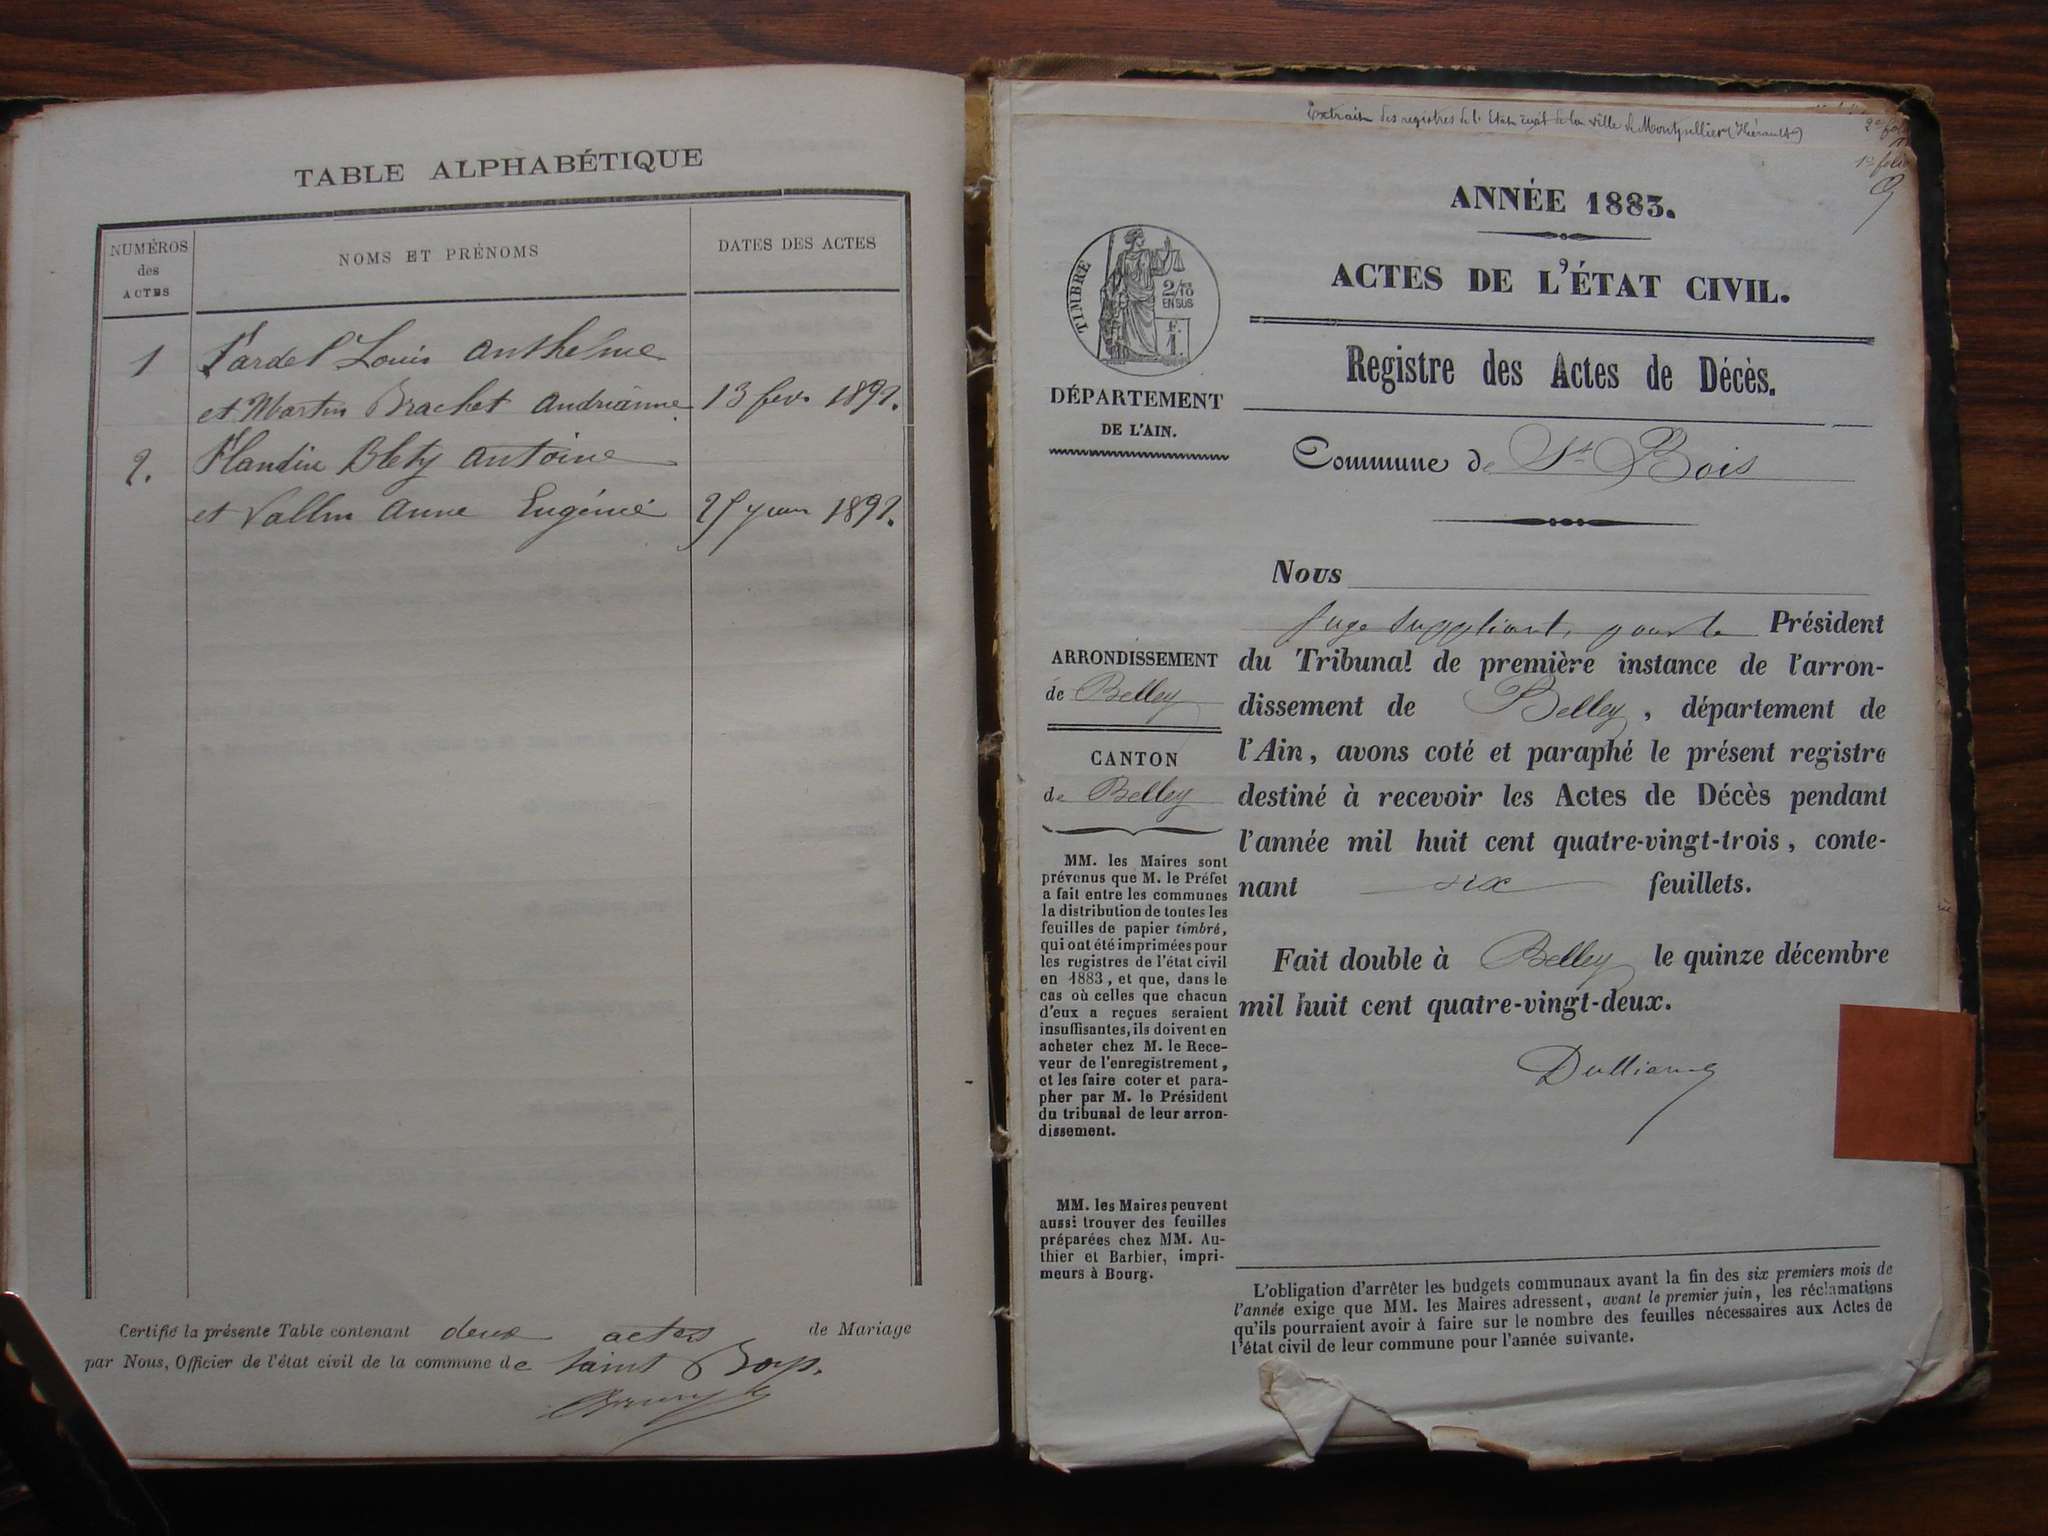 TABLE ALPHABÉTIQUE
NUMÉROS
des
ACTES
NOMS ET PRÉNOMS
DATES DES ACTES
1
Fardel Louis Anthelme
et Martin Brachet Andrianne
13 fevr 1892.
2.
Flandin Blety Antoine
et Vallin Anne Eugénie
25 juin 1892.
Certifié la présente Table contenant deux actes de Mariage
par Nous, Officier de l'état civil de la commune de Saint Boys.
Extrait des registres de l'Etat civil de la ville de Montpellier (Hérault)
2e folio
1er folio
ANNÉE 1883.
ACTES DE L'ÉTAT CIVIL.
TIMBRE
2/10
EN SUS
F.
1
Registre des Actes de Décès.
DÉPARTEMENT
DE L'AIN.
Commune de St Bois
Nous
Juge Suppléant, pour le Président
du Tribunal de première instance de l'arron-
dissement de Belley, département de
l'Ain, avons coté et paraphé le présent registre
destiné à recevoir les Actes de Décès pendant
l'année mil huit cent quatre-vingt-trois, conte-
nant six feuillets.
Fait double à Belley le quinze décembre
mil huit cent quatre-vingt-deux.
ARRONDISSEMENT
de Belley
CANTON
de Belley
MM. les Maires sont
prévenus que M. le Préfet
a fait entre les communes
la distribution de toutes les
feuilles de papier timbré,
qui ont été imprimées pour
les registres de l'état civil
en 1883, et que, dans le
cas où celles que chacun
d'eux a reçues seraient
insuffisantes, ils doivent en
acheter chez M. le Rece-
veur de l'enregistrement,
et les faire coter et para-
pher par M. le Président
du tribunal de leur arron-
dissement.
MM. les Maires peuvent
aussi trouver des feuilles
préparées chez MM. Au-
thier et Barbier, impri-
meurs à Bourg.
L'obligation d'arrêter les budgets communaux avant la fin des six premiers mois de
l'année exige que MM. les Maires adressent, avant le premier juin, les réclamations
qu'ils pourraient avoir à faire sur le nombre des feuilles nécessaires aux Actes de
l'état civil de leur commune pour l'année suivante.